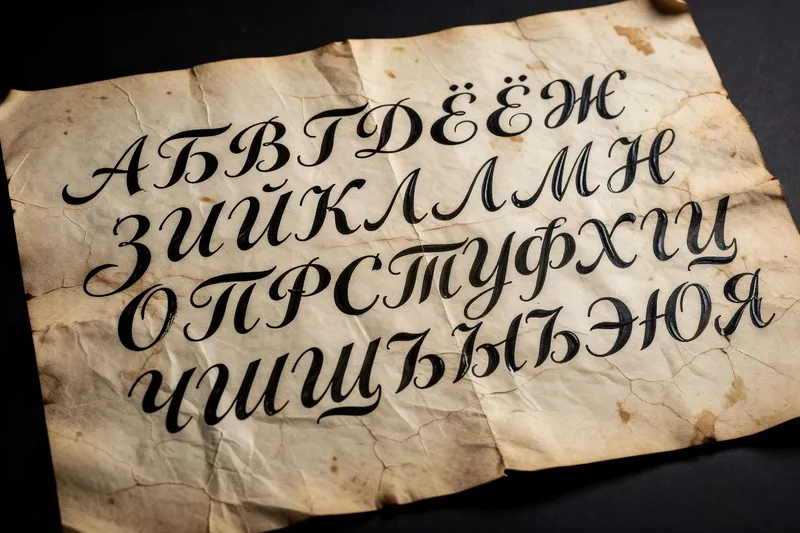 АБВГДЁЁЖ
ЗИЙКЛЛМН
ОПРСТУФХІЦ
ЧШЩЪЫЪЭЮЯ